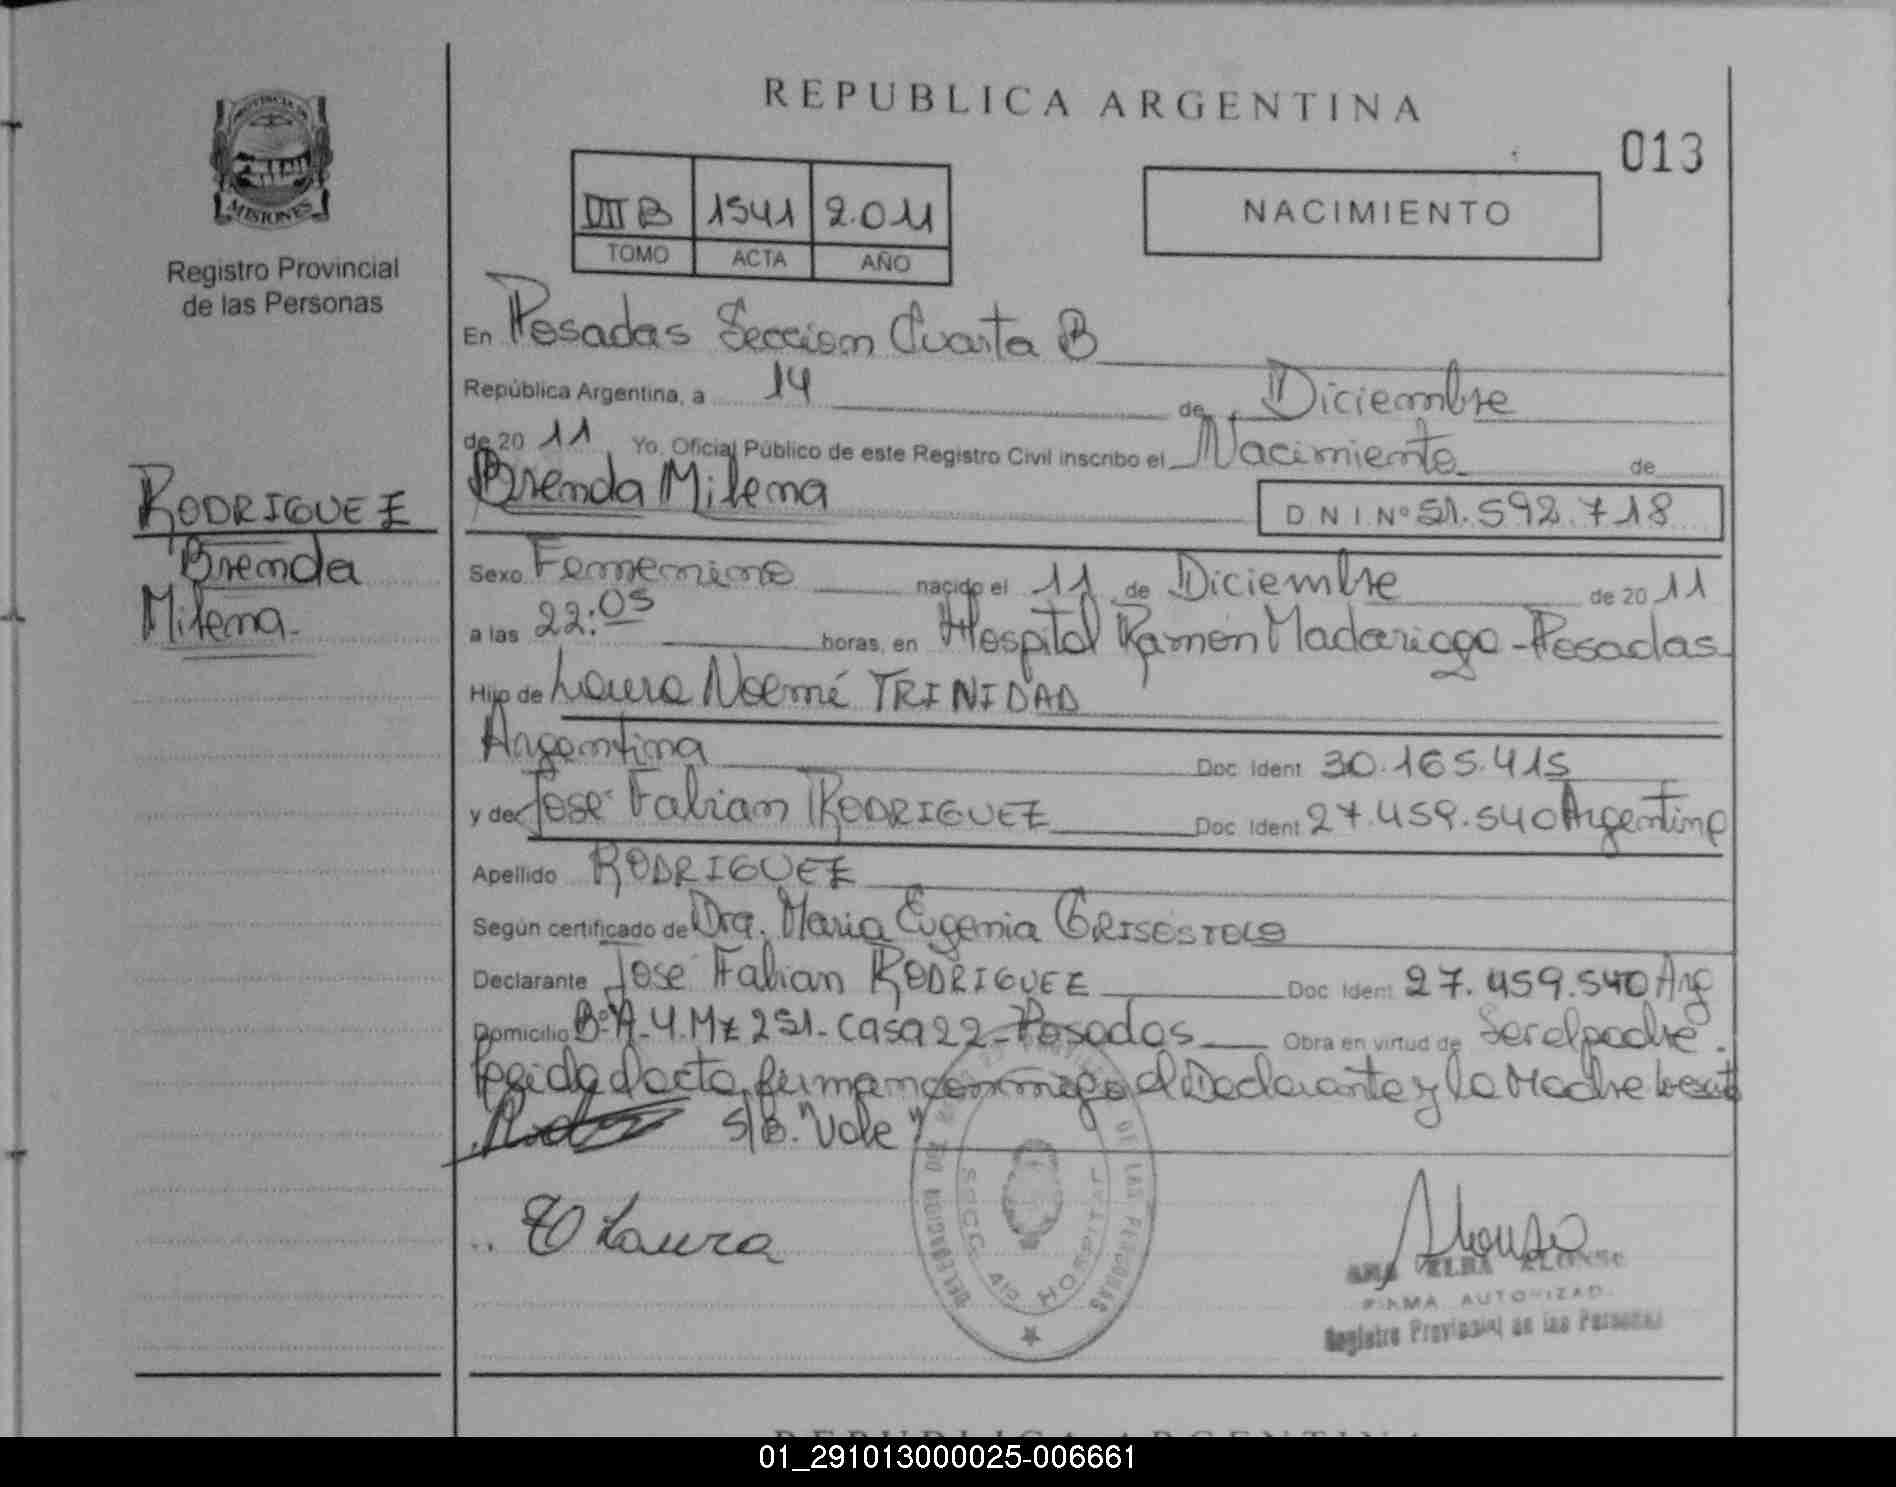 REPUBLICA ARGENTINA
013
PROVINCIA DE
MISIONES
Registro Provincial
de las Personas
III B 1541 2.011
TOMO ACTA AÑO
NACIMIENTO
En Posadas Seccion Cuarta B
República Argentina, a 14 de Diciembre
de 20 11 Yo, Oficial Público de este Registro Civil inscribo el Nacimiento de
Brenda Milena
D N I Nº 51.592.718
RODRIGUEZ
Brenda
Milena.
Sexo Femenino nacido el 11 de Diciembre de 20 11
a las 22:05 horas, en Hospital Ramón Madariaga - Posadas
Hijo de Laura Noemí TRINIDAD
Argentina Doc Ident 30.165.415
y de José Fabian RODRIGUEZ Doc Ident 27.459.540 Argentino
Apellido RODRIGUEZ
Según certificado de Dra. Maria Eugenia
Declarante José Fabian RODRIGUEZ Doc Ident 27.459.540 Arg
Domicilio Bº A-4. Mz 251- Casa 22 - Posadas Obra en virtud de Ser el padre.
Leida el acta, firman conmigo el Declarante y la Madre
S/B. "Vale"
Laura
DE LAS PERSONAS
HOSPITAL
Alonso
ANA ELBA ALONSO
FIRMA AUTORIZAD
Registro Provincial de las Personas
REPUBLICA ARGENTINA
01_291013000025-006661